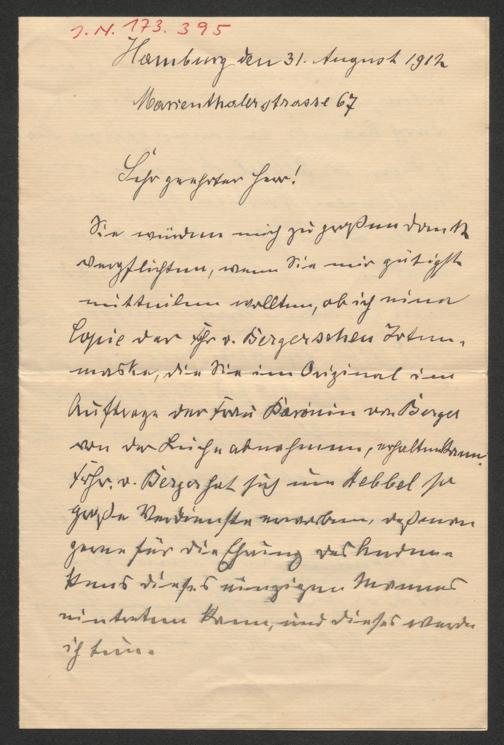 J.N. 173.395
Hamburg den 31. August 1912
Marienthalerstrasse 67
Sehr geehrter Herr!
Sie würden mich zu großem Dank
verpflichten, wenn Sie mir gütigst
mitteilen wollten, ob ich eine
Copie der Fhr v. Bergerschen Toten-
maske, die Sie im Original im
Auftrage der Frau Baronin von Berger
von der Leiche abnahmen, erhalten kann.
Frhr. v. Berger hat sich um Hebbel so
große Verdienste erworben, daß man
gerne für die Ehrung des Anden-
kens dieses einzigen Mannes
eintreten kann, und dieses werde
ich tun.